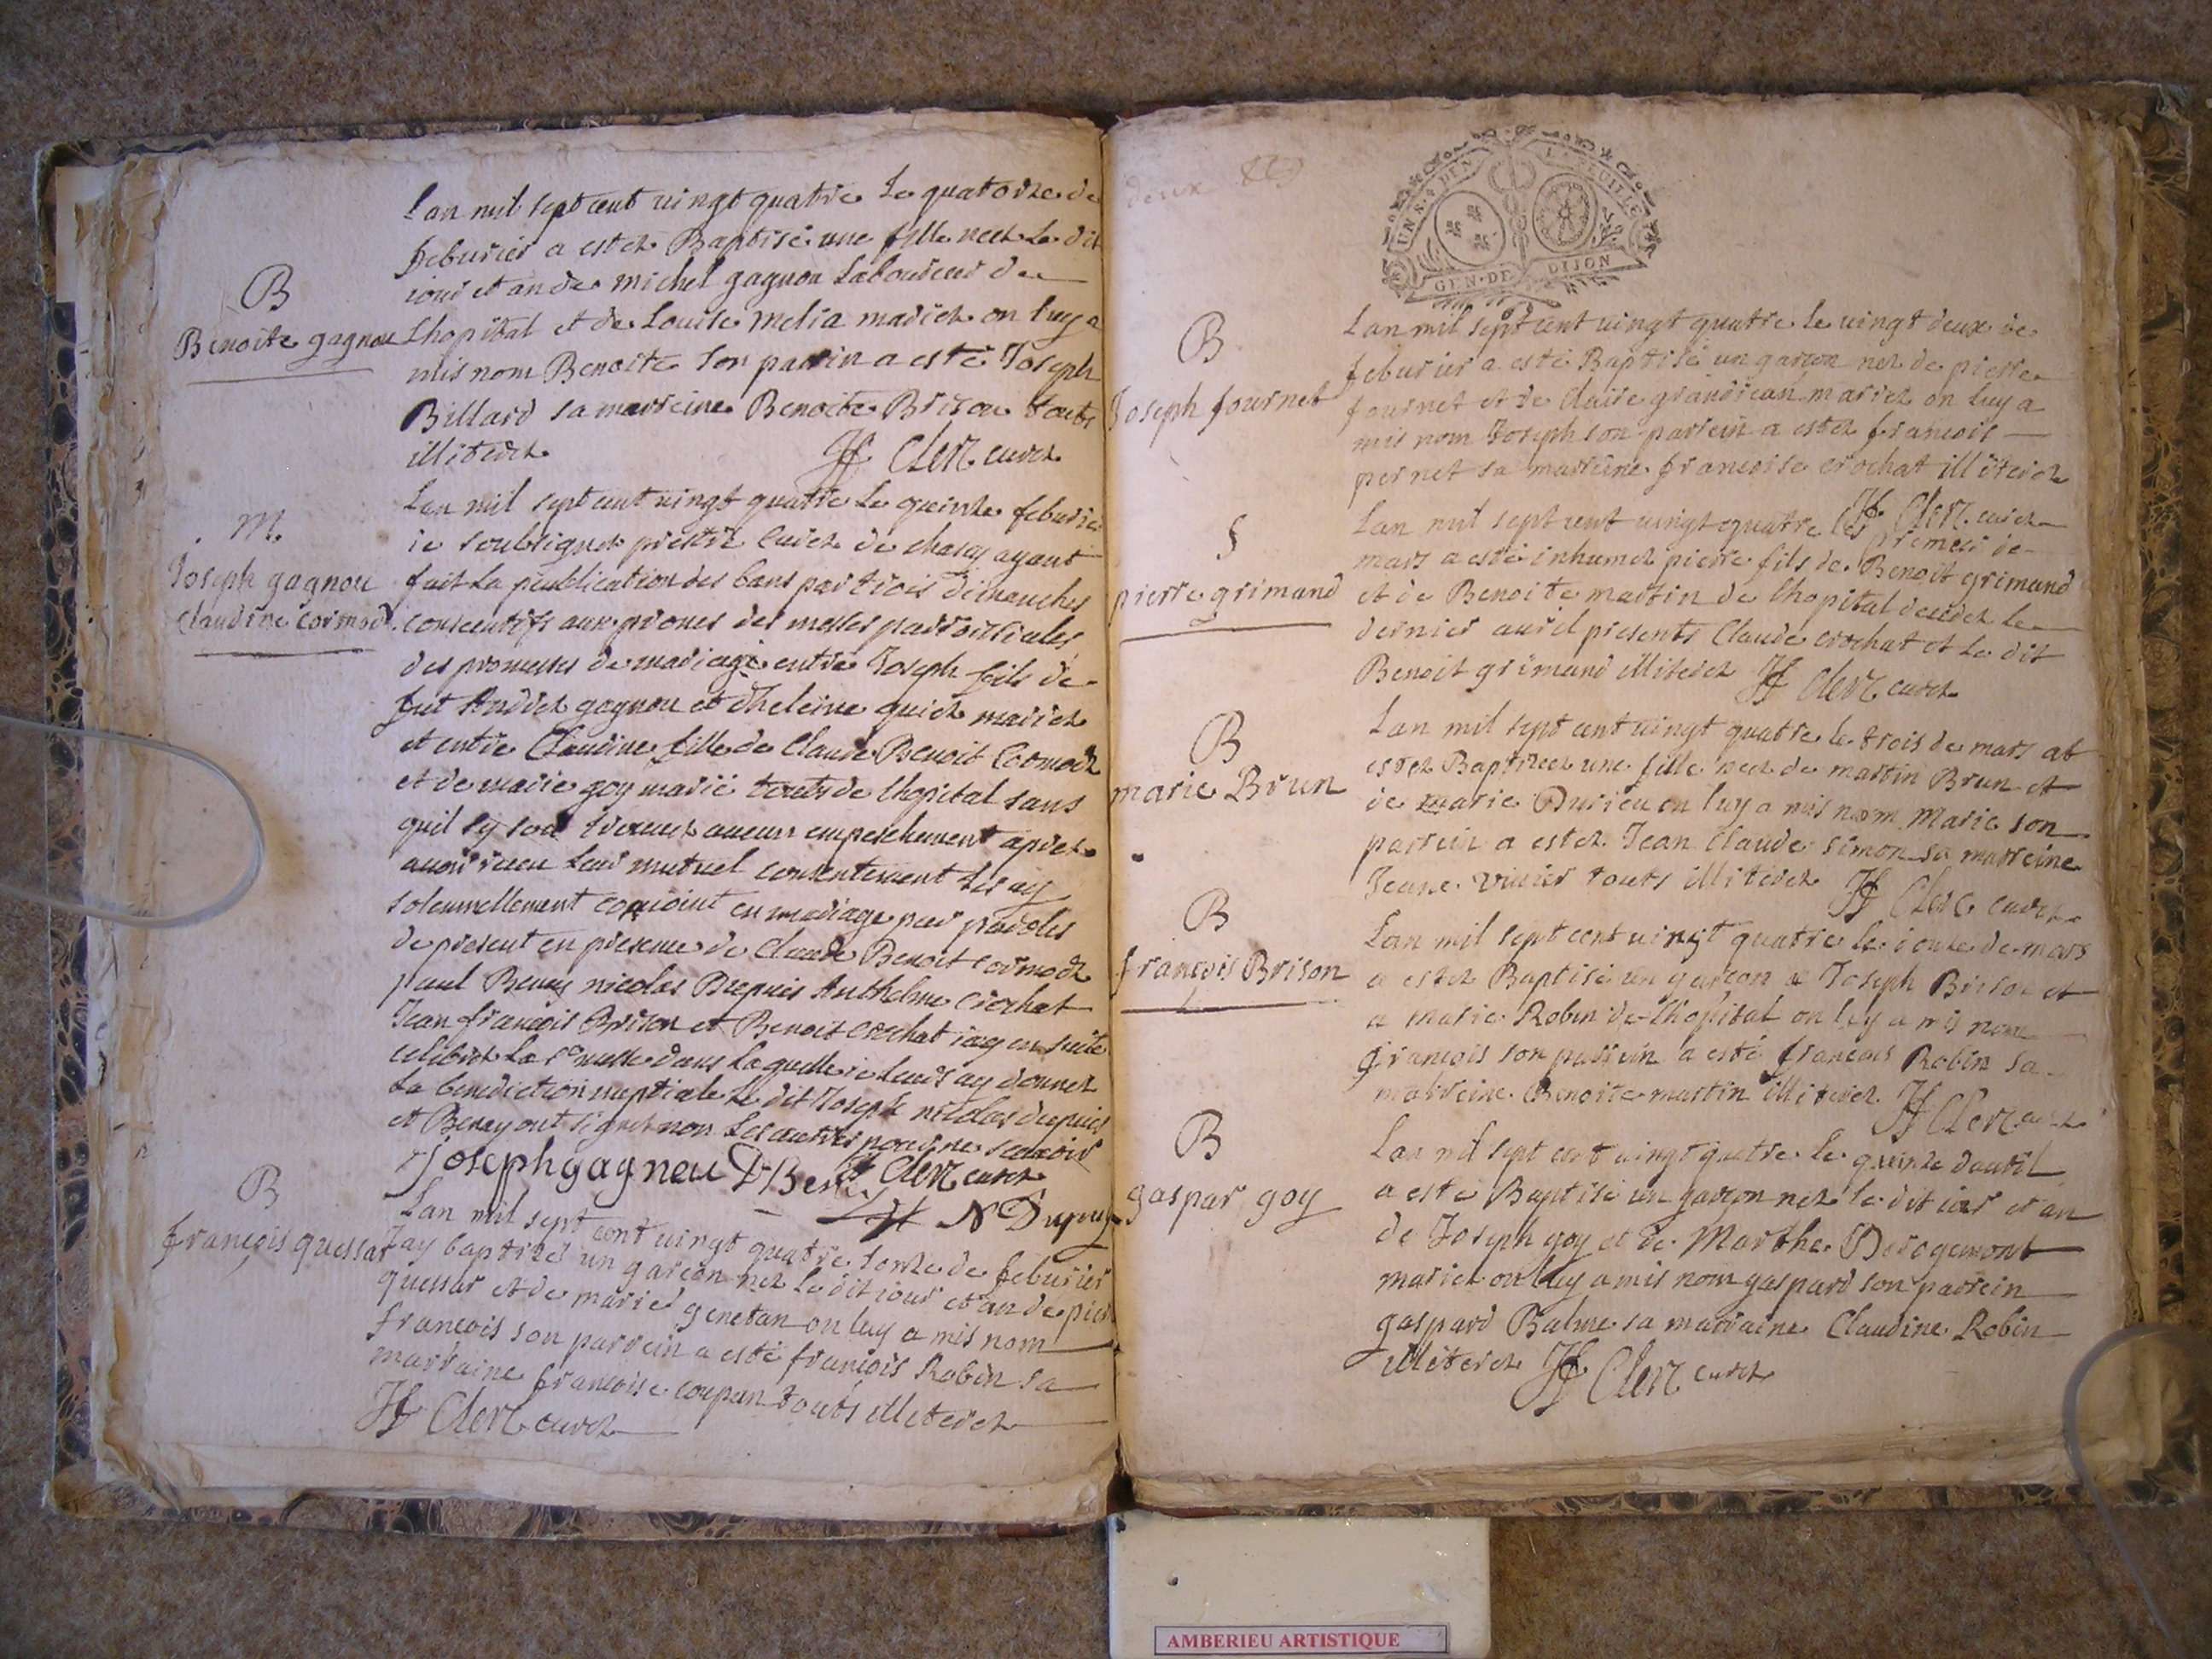 Lan mil sept cent vingt quatre Le quatorze de
feburier a estez Baptisé une fille neez Le dit
iour et an de michel gagnou Laboureur de
B
Benoite gagnou
Lhopital et de Louise melia mariez on luy a
mis nom Benoite son parrin a esté Joseph
Billard sa marreine Benoite Brison touts
illiterez
JF Clerc curez
Lan mil sept cent vingt quatre Le quinze feburier
M.
Joseph gagnou
Claudine cormod.
ie soubsignez prestre curez de ayant
fait La publication des bans par trois dimanches
consecutifs aux prones des messes parroissiales
des promesses de mariage entre Joseph fils de
fut Andrez gagnou et dheleine mariez
et entre Claudine fille de Claude Benoit Cormodz
et de marie goy marié touts de lhopital sans
quil sy soit trouvez aucun empeschement apres
auoir receu Leur mutuel consentement Les ay
solennellement conioint en mariage par paroles
de present en presence de Claude Benoit cormodz
paul Beney nicolas Drepuis Anthelme crochat
Jean francois Brison et Benoit crochat iay en suite
celebrez La Ste messe dans Laquelle ie Leurs ay donnez
La benediction nuptiale Le dit Joseph nicolas depuies
et Beney ont signez non Les autres pour ne scauoir
josephgagneu JF Clerc curez
N Dupuy
B
françois quessar
Lan mil sept cent vingt quatre de feburier
Jay baptizez un garcon nez Le dit iour et an de
quessar et de marie genetan on luy a mis nom
francois son parrein a esté françois Robin sa
marraine francoise coupan touts illiterez
JF Clerc curez
deux
UN S. 4 DEN LA FEUILLE
GEN. DE DIJON
B
Joseph fournet
Lan mil sept cent vingt quatre le vingt deux de
feburier a esté Baptisé un garcon nez de pierre
fournet et de Claire grandiean mariez on luy a
mis nom Joseph son parrein a estez francois
pernet sa marreine francoise crochat illiterez
JF Clerc curez
S
pierre grimand
Lan mil sept cent vingt quatre le premier de
mars a esté inhumez pierre fils de Benoit grimand
et de Benoite martin de lhopital decedez le
dernier auril presents Claude crochat et Le dit
Benoit grimand illiterez JF Clerc curez
B
marie Brun
Lan mil sept cent vingt quatre le trois de mars at
estez Baptizeez une fille neez de martin Brun et
de marie Durieu on luy a mis nom Marie son
parrein a estez Jean Claude simon sa marreine
Jeane viuier touts illiterez JF Clerc curez
B
françois Brison
Lan mil sept cent vingt quatre le de mars
a estez Baptisé un garcon a Joseph Brison et
a marie Robin de Lhopital on luy a mis nom
francois son parrein a esté francois Robin sa
marreine Benoite martin illiterez JF Clerc curez
B
gaspar goy
Lan mil sept cent vingt quatre le quinze dauril
a esté Baptisé un garcon nez le dit iour et an
de Joseph goy et de Marthe Derogemont
mariez on luy a mis nom gaspard son parrein
gaspard Balme sa marraine Claudine Robin
illiterez JF Clerc curez
AMBERIEU ARTISTIQUE